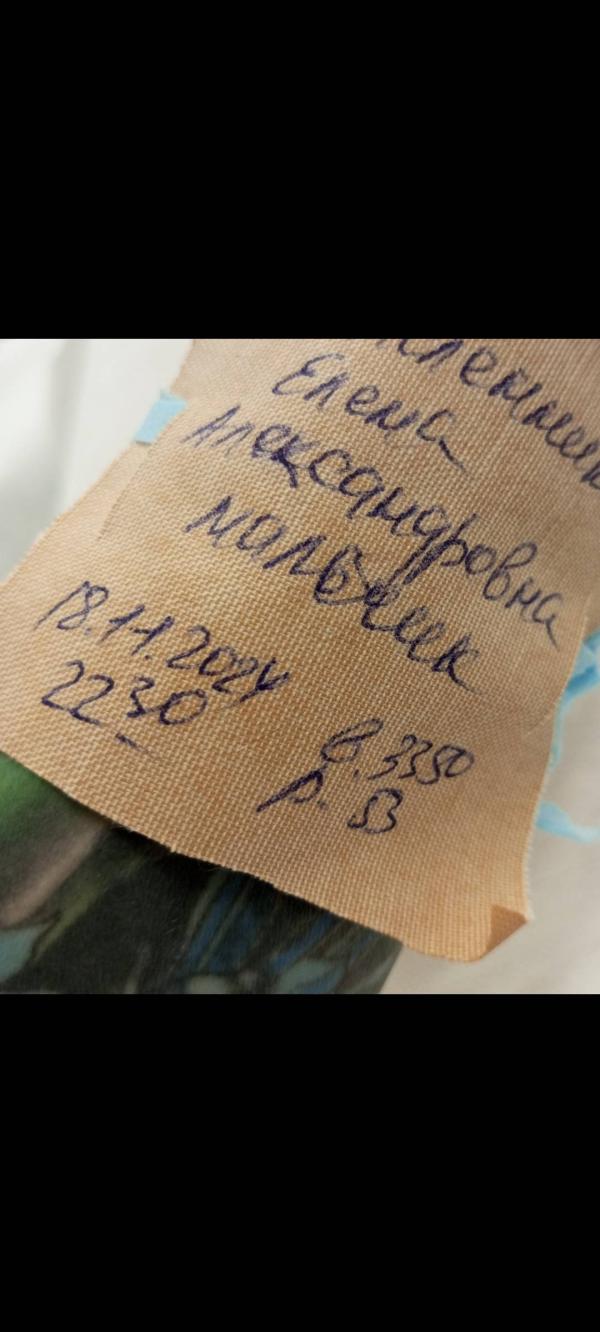 Елена
Александровна
мальчик
18.11.2024
22 30
в. 3350
р. 53